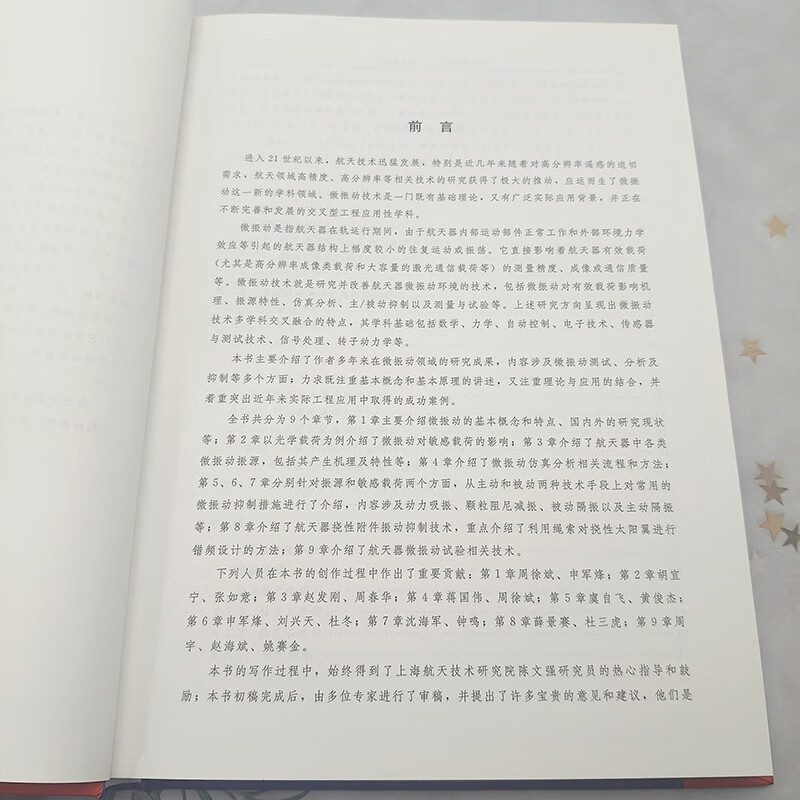 前言
进入21世纪以来，航天技术迅猛发展，特别是近几年来随着对高分辨率遥感的迫切
需求，航天领域高精度、高分辨率等相关技术的研究获得了极大的推动，应运而生了微振
动这一新的学科领域。微振动技术是一门既有基础理论，又有广泛实际应用背景，并正在
不断完善和发展的交叉型工程应用性学科。
微振动是指航天器在轨运行期间，由于航天器内部运动部件正常工作和外部环境力学
效应等引起的航天器结构上幅度较小的往复运动或振荡。它直接影响着航天器有效载荷
（尤其是高分辨率成像类载荷和大容量的激光通信载荷等）的测量精度、成像或通信质量
等。微振动技术就是研究并改善航天器微振动环境的技术，包括微振动对有效载荷影响机
理、振源特性、仿真分析、主/被动抑制以及测量与试验等。上述研究方向呈现出微振动
技术多学科交叉融合的特点，其学科基础包括数学、力学、自动控制、电子技术、传感器
与测试技术、信号处理、转子动力学等。
本书主要介绍了作者多年来在微振动领域的研究成果，内容涉及微振动测试、分析及
抑制等多个方面；力求既注重基本概念和基本原理的讲述，又注重理论与应用的结合，并
着重突出近年来实际工程应用中取得的成功案例。
全书共分为9个章节，第1章主要介绍微振动的基本概念和特点、国内外的研究现状
等；第2章以光学载荷为例介绍了微振动对敏感载荷的影响；第3章介绍了航天器中各类
微振动振源，包括其产生机理及特性等；第4章介绍了微振动仿真分析相关流程和方法；
第5、6、7章分别针对振源和敏感载荷两个方面，从主动和被动两种技术手段上对常用的
微振动抑制措施进行了介绍，内容涉及动力吸振、颗粒阻尼减振、被动隔振以及主动隔振
等；第8章介绍了航天器挠性附件振动抑制技术，重点介绍了利用绳索对挠性太阳翼进行
错频设计的方法；第9章介绍了航天器微振动试验相关技术。
下列人员在本书的创作过程中作出了重要贡献：第1章周徐斌、申军烽；第2章胡宜
宁、张如意；第3章赵发刚、周春华；第4章蒋国伟、周徐斌；第5章虞自飞、黄俊杰；
第6章申军烽、刘兴天、杜冬；第7章沈海军、钟鸣；第8章薛景赛、杜三虎；第9章周
宇、赵海斌、姚赛金。
本书的写作过程中，始终得到了上海航天技术研究院陈文强研究员的热心指导和鼓
励；本书初稿完成后，由多位专家进行了审稿，并提出了许多宝贵的意见和建议，他们是